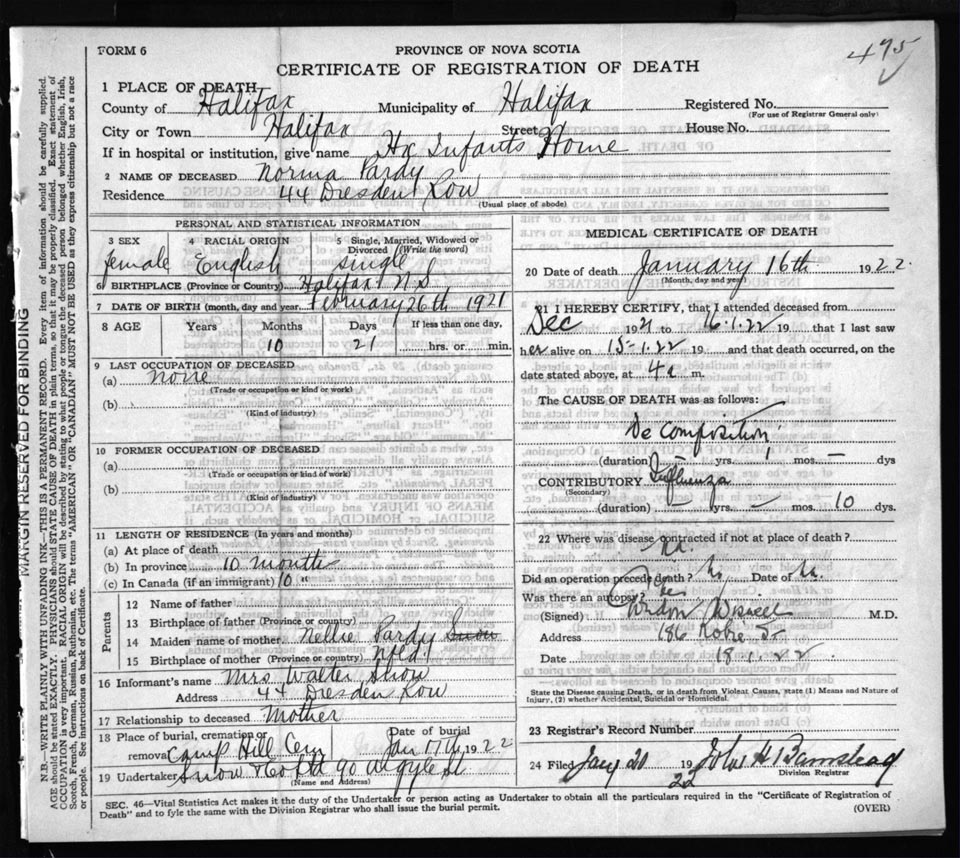 FORM 6
PROVINCE OF NOVA SCOTIA
475
CERTIFICATE OF REGISTRATION OF DEATH
1 PLACE OF DEATH
County of Halifax Municipality of Halifax Registered No.
(For use of Registrar General only)
City or Town Halifax Street House No.
If in hospital or institution, give name Hx Infants Home
2 NAME OF DECEASED Norma Pardy
Residence 44 Dresden Row
(Usual place of abode)
PERSONAL AND STATISTICAL INFORMATION
3 SEX 4 RACIAL ORIGIN 5 Single, Married, Widowed or Divorced (Write the word)
female English single
6 BIRTHPLACE (Province or Country) Halifax N.S.
7 DATE OF BIRTH (month, day and year) February 26th 1921
8 AGE Years Months Days If less than one day,
10 21 hrs. or min.
9 LAST OCCUPATION OF DECEASED
(a) none
(Trade or occupation or kind or work)
(b)
(Kind of industry)
10 FORMER OCCUPATION OF DECEASED
(a)
(Trade or occupation or kind of work)
(b)
(Kind of industry)
11 LENGTH OF RESIDENCE (In years and months)
(a) At place of death
(b) In province 10 months
(c) In Canada (if an immigrant) 10 "
Parents
12 Name of father
13 Birthplace of father (Province or country)
14 Maiden name of mother Nellie Pardy Snow
15 Birthplace of mother (Province or country) Nfld
16 Informant's name Mrs Walter Snow
Address 44 Dresden Row
17 Relationship to deceased Mother
18 Place of burial, cremation or removal Camp Hill Cem Date of burial Jan 17th 1922
19 Undertaker Snow & Co Ltd 90 Argyle St
(Name and Address)
MEDICAL CERTIFICATE OF DEATH
20 Date of death January 16th 1922.
(Month, day and year)
21 I HEREBY CERTIFY, that I attended deceased from
Dec 1921 to 16.1.22 19 that I last saw
her alive on 15-1.22 19 and that death occurred, on the
date stated above, at 4 a m.
The CAUSE OF DEATH was as follows:
Decomposition
(duration) – yrs. 1 mos – dys
CONTRIBUTORY Influenza
(Secondary)
(duration) – yrs. – mos. 10 dys.
22 Where was disease contracted if not at place of death?
Did an operation precede death? No Date of
Was there an autopsy?
(Signed) M.D.
Address 186 Robie St
Date 18.1.22
State the Disease causing Death, or in death from Violent Causes, state (1) Means and Nature of Injury, (2) whether Accidental, Suicidal or Homicidal.
23 Registrar's Record Number
24 Filed Jany 20 1922 John H Barnstead
Division Registrar
SEC. 46—Vital Statistics Act makes it the duty of the Undertaker or person acting as Undertaker to obtain all the particulars required in the "Certificate of Registration of
Death" and to fyle the same with the Division Registrar who shall issue the burial permit. (OVER)
MARGIN RESERVED FOR BINDING
N.B.—WRITE PLAINLY WITH UNFADING INK—THIS IS A PERMANENT RECORD. Every item of information should be carefully supplied.
AGE should be stated EXACTLY. PHYSICIANS should STATE CAUSE OF DEATH in plain terms, so that it may be properly classified. Exact statement of
OCCUPATION is very important. RACIAL ORIGIN will be described by stating to what people or tongue the deceased person belonged whether English, Irish,
Scotch, French, German, Russian, Ruthenian, etc. The terms "AMERICAN" or "CANADIAN" MUST NOT BE USED as they express citizenship but not a race
or people. See instructions on back of Certificate.